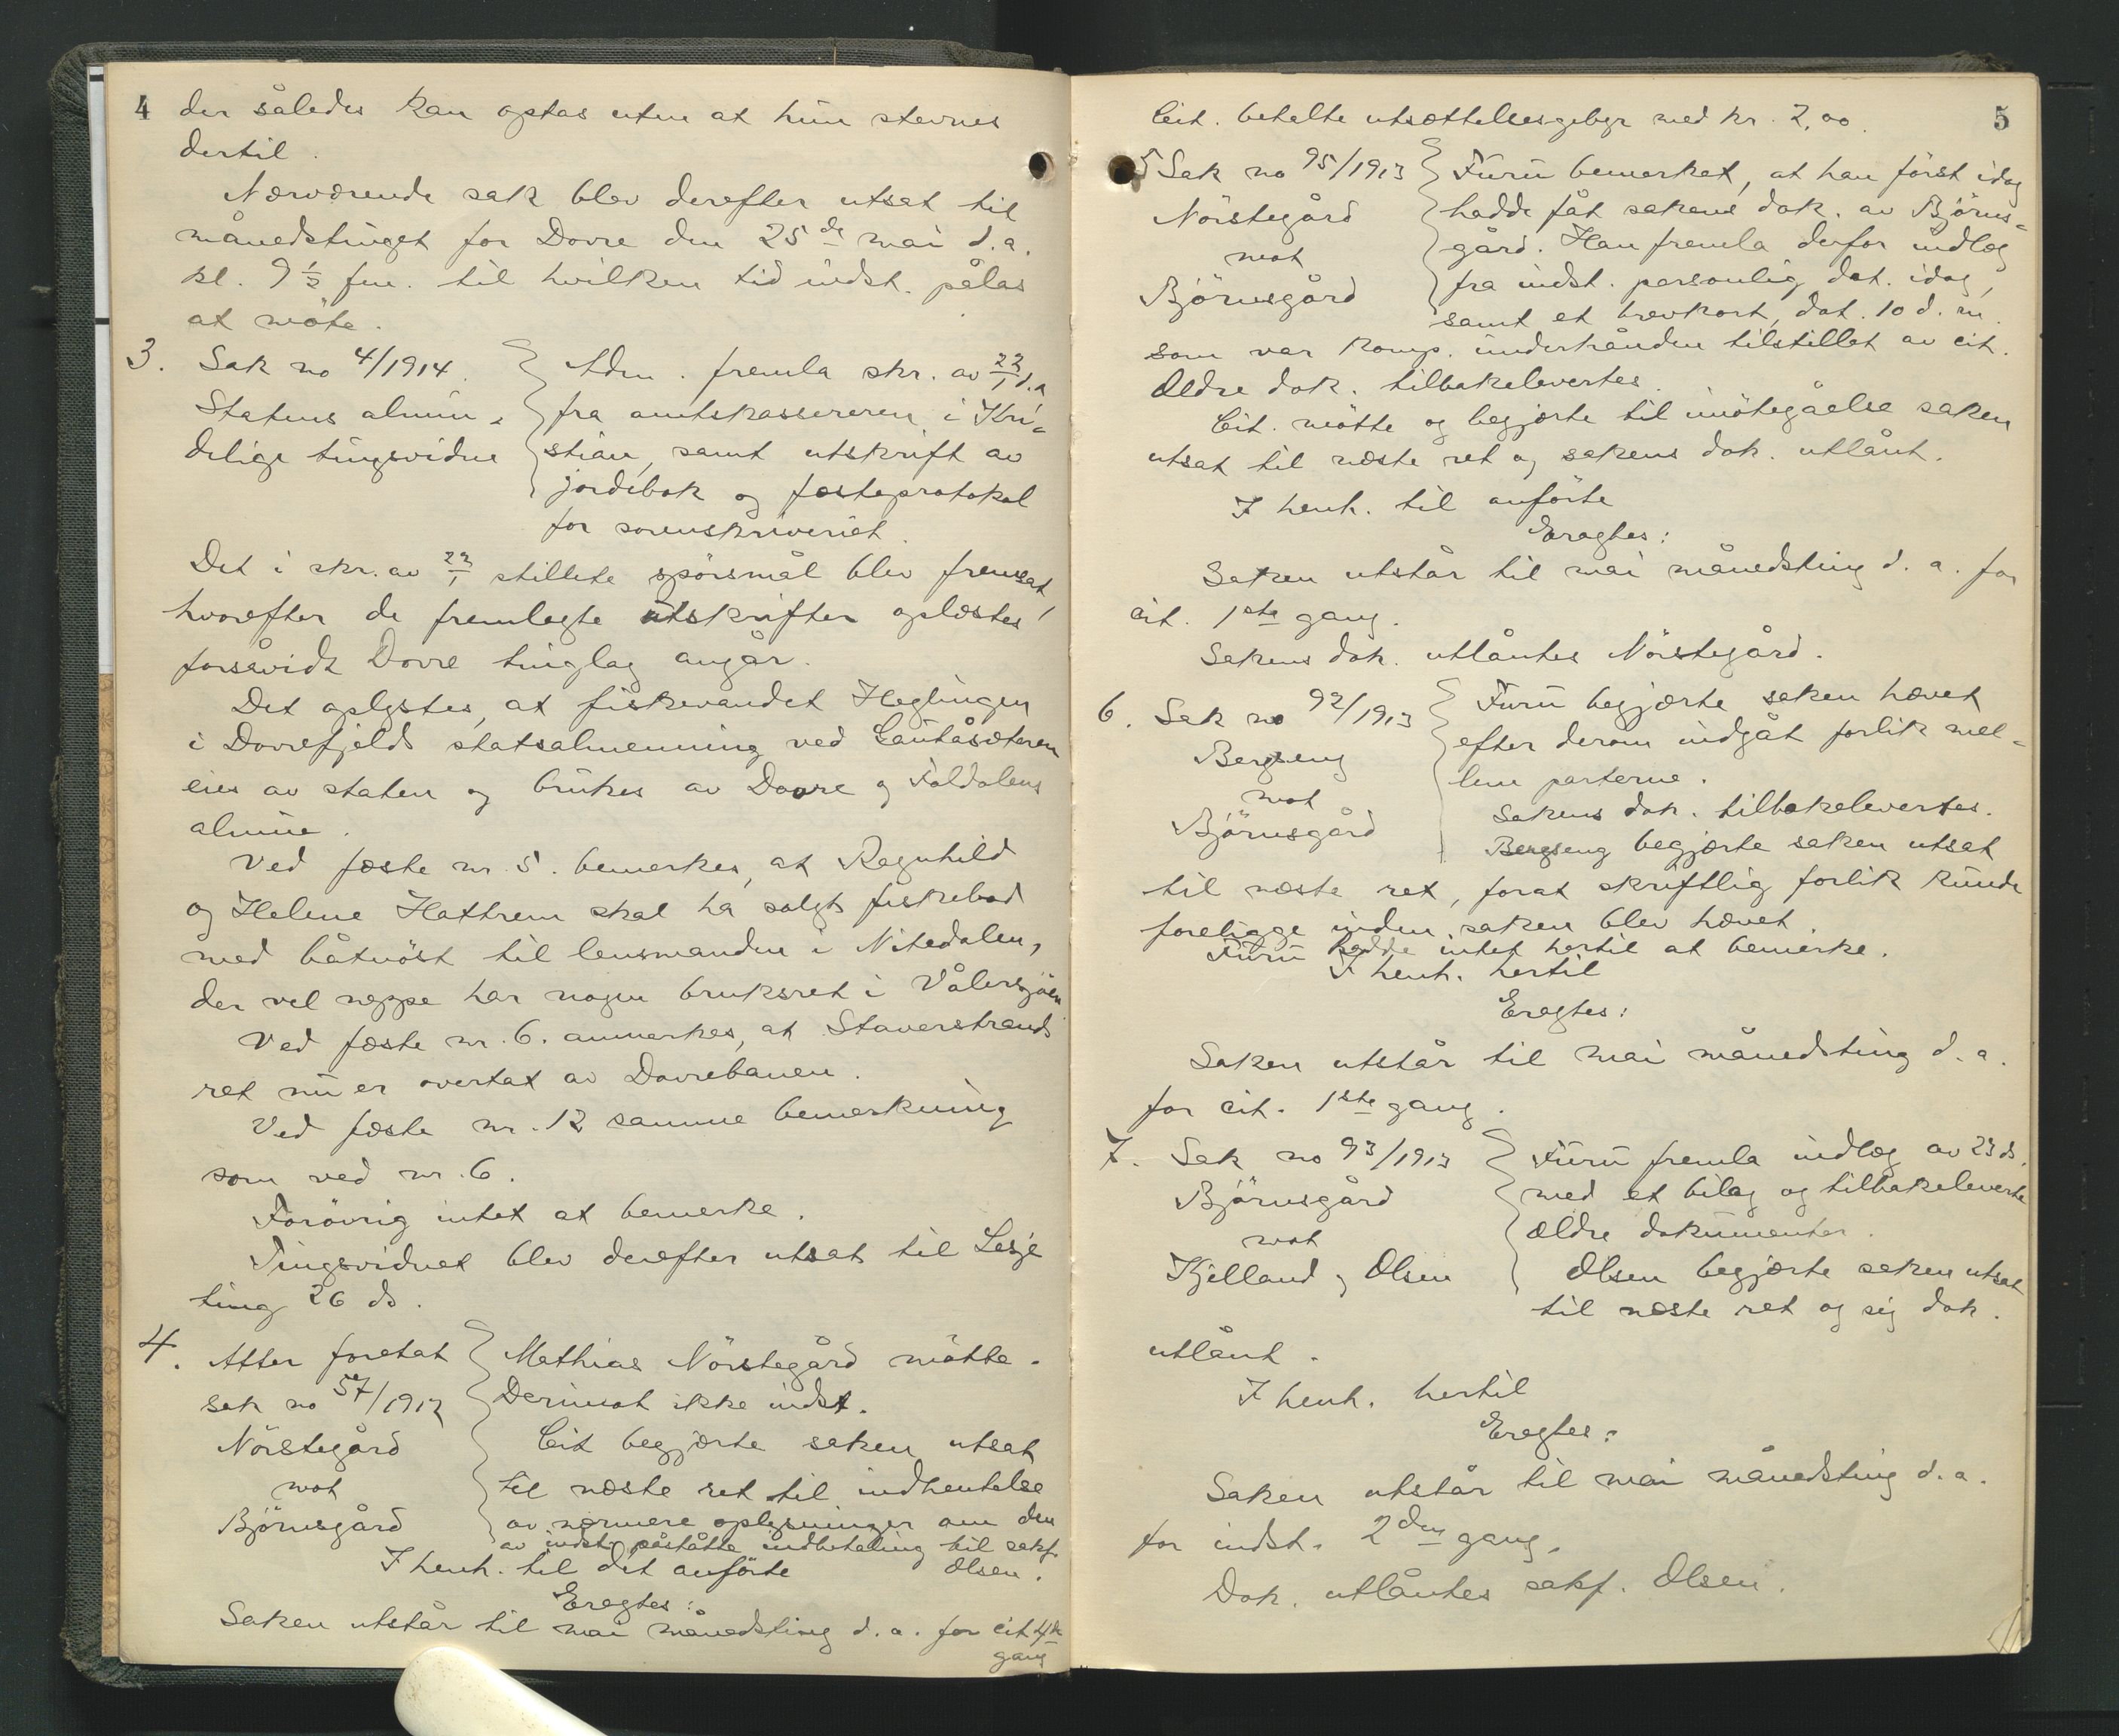 4
der således kan optas uten at hun stevnes
dertil.
Nærværende sak blev derefter utsat til
månedstinget for Dovre den 25de mai d.a.
kl. 9 1/2 fm. til hvilken tid indst. pålas
at møte.
3. Sak no 4/1914.
Statens almin-
delige tingsvidne
Adm. fremla skr. av 22/1 d.a
fra amtskassereren i Kri-
stian, samt utskrift av
jordebok og fæsteprotokol
for sorenskriveriet.
Det i skr. av 22/1 stillete spörsmål blev fremsat,
hvorefter de fremlagte utskrifter oplæstes,
forsåvidt Dovre tinglag angår.
Det oplystes, at fiskevandet Heglingen
i Dovrefjelds statsalmenning ved Gautåsæteren
eies av staten og brukes av Dovre og Foldalens
almue.
Ved fæste nr. 5. bemerkes, at Ragnhild
og Helene Hattrem skal ha solgt fiskebod
med båtnöst til lensmanden i Nitedalen,
der vel neppe har nogen bruksret i Vålersjöen
Ved fæste nr. 6. anmerkes, at Staverstrands
ret nu er overtat av Dovrebanen.
Ved fæste nr. 12 samme bemerkning
som ved nr. 6.
Forövrig intet at bemerke.
Tingsvidnet blev derefter utsat til Lesje
ting 26 ds.
4. Atter foretat
sak no 57/1912
Nörstegård
mot
Björnsgård
Mathias Nörstegård mötte.
Derimot ikke indst.
Cit begjærte saken utsat
til næste ret til indhentelse
av nærmere oplysninger om den
av indst. påståtte indbetaling til sakf.
Olsen.
I henh. til det anförte
Eragtes:
Saken utstår til mai månedsting d.a. for cit 4de
gang
5
Cit. betalte utsættelsesgebyr med kr. 2,00.
5 Sak no 95/1913
Nörstegård
mot
Björnsgård
Furu bemerket, at han först idag
hadde fåt sakens dok. av Björns-
gård. Han fremla derfor indlæg
fra indst. personlig, dat. idag,
samt et brevkort, dat. 10 d.m.
som var komp. underhånden tilstillet av cit.
Ældre dok. tilbakelevertes.
Cit. mötte og begjærte til imötegåelse saken
utsat til næste ret og sakens dok. utlånt.
I henh. til anförte
Eragtes:
Saken utstår til mai månedsting d.a. for
cit. 1ste gang.
Sakens dok. utlåntes Nörstegård.
6. Sak no 92/1913
Bergseng
mot
Björnsgård
Furu begjærte saken hævet
efter derom indgåt forlik mel-
lem parterne.
Sakens dok. tilbakelevertes.
Bergseng begjærte saken utsat
til næste ret, forat skriftlig forlik kunde
foreligge inden saken blev hævet.
Furu hadde intet hertil at bemerke.
I henh. hertil
Eragtes:
Saken utstår til mai månedsting d.a.
for cit. 1ste gang.
7. Sak no 93/1913
Björnsgård
mot
Kjelland og Olsen
Furu fremla indlæg av 23 ds.
med et bilag og tilbakeleverte
ældre dokumenter.
Olsen begjærte saken utsat
til næste ret og sig dok.
utlånt.
I henh. hertil
Eragtes:
Saken utstår til mai månedsting d.a.
for indst. 2den gang.
Dok. utlåntes sakf. Olsen.